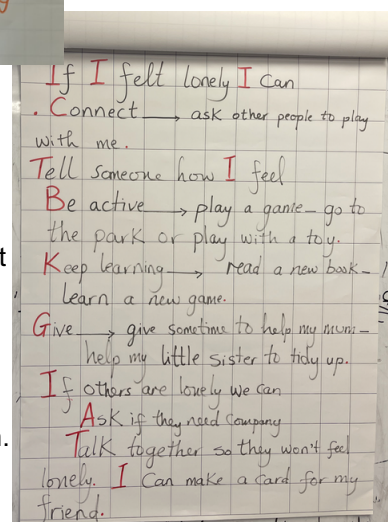 If I felt lonely I can
. Connect → ask other people to play
with me.
Tell someone how I feel
Be active → play a game – go to
the park or play with a toy.
Keep learning → read a new book –
learn a new game.
Give → give sometime to help my mum –
help my little sister to tidy up.
If others are lonely we can
Ask if they need company
Talk together so they won't feel
lonely. I can make a card for my
friend.